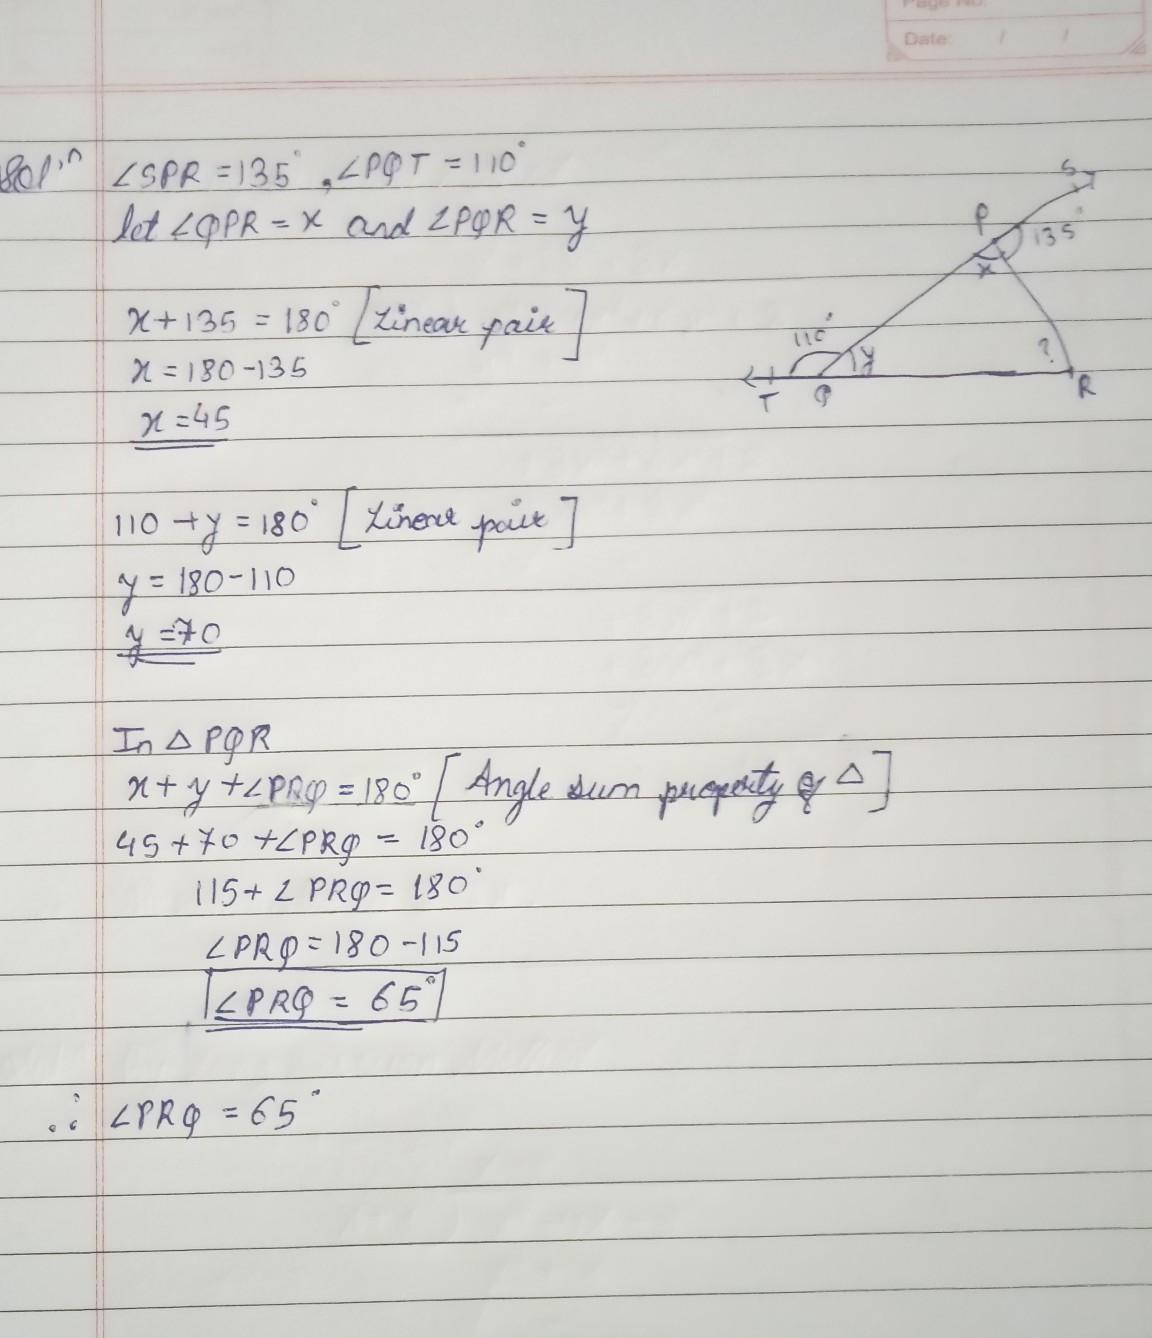 Page No.
Date: / /
Solⁿ ∠SPR = 135°, ∠PQT = 110°
let ∠QPR = x and ∠PQR = y
x + 135 = 180° [Linear pair]
x = 180 - 135
x = 45
110 + y = 180° [Linear pair]
y = 180 - 110
y = 70
In △ PQR
x + y + ∠PRQ = 180° [Angle sum property of △]
45 + 70 + ∠PRQ = 180°
115 + ∠PRQ = 180°
∠PRQ = 180 - 115
∠PRQ = 65°
∴ ∠PRQ = 65°
S
P
135°
x
110°
y
?
T
Q
R